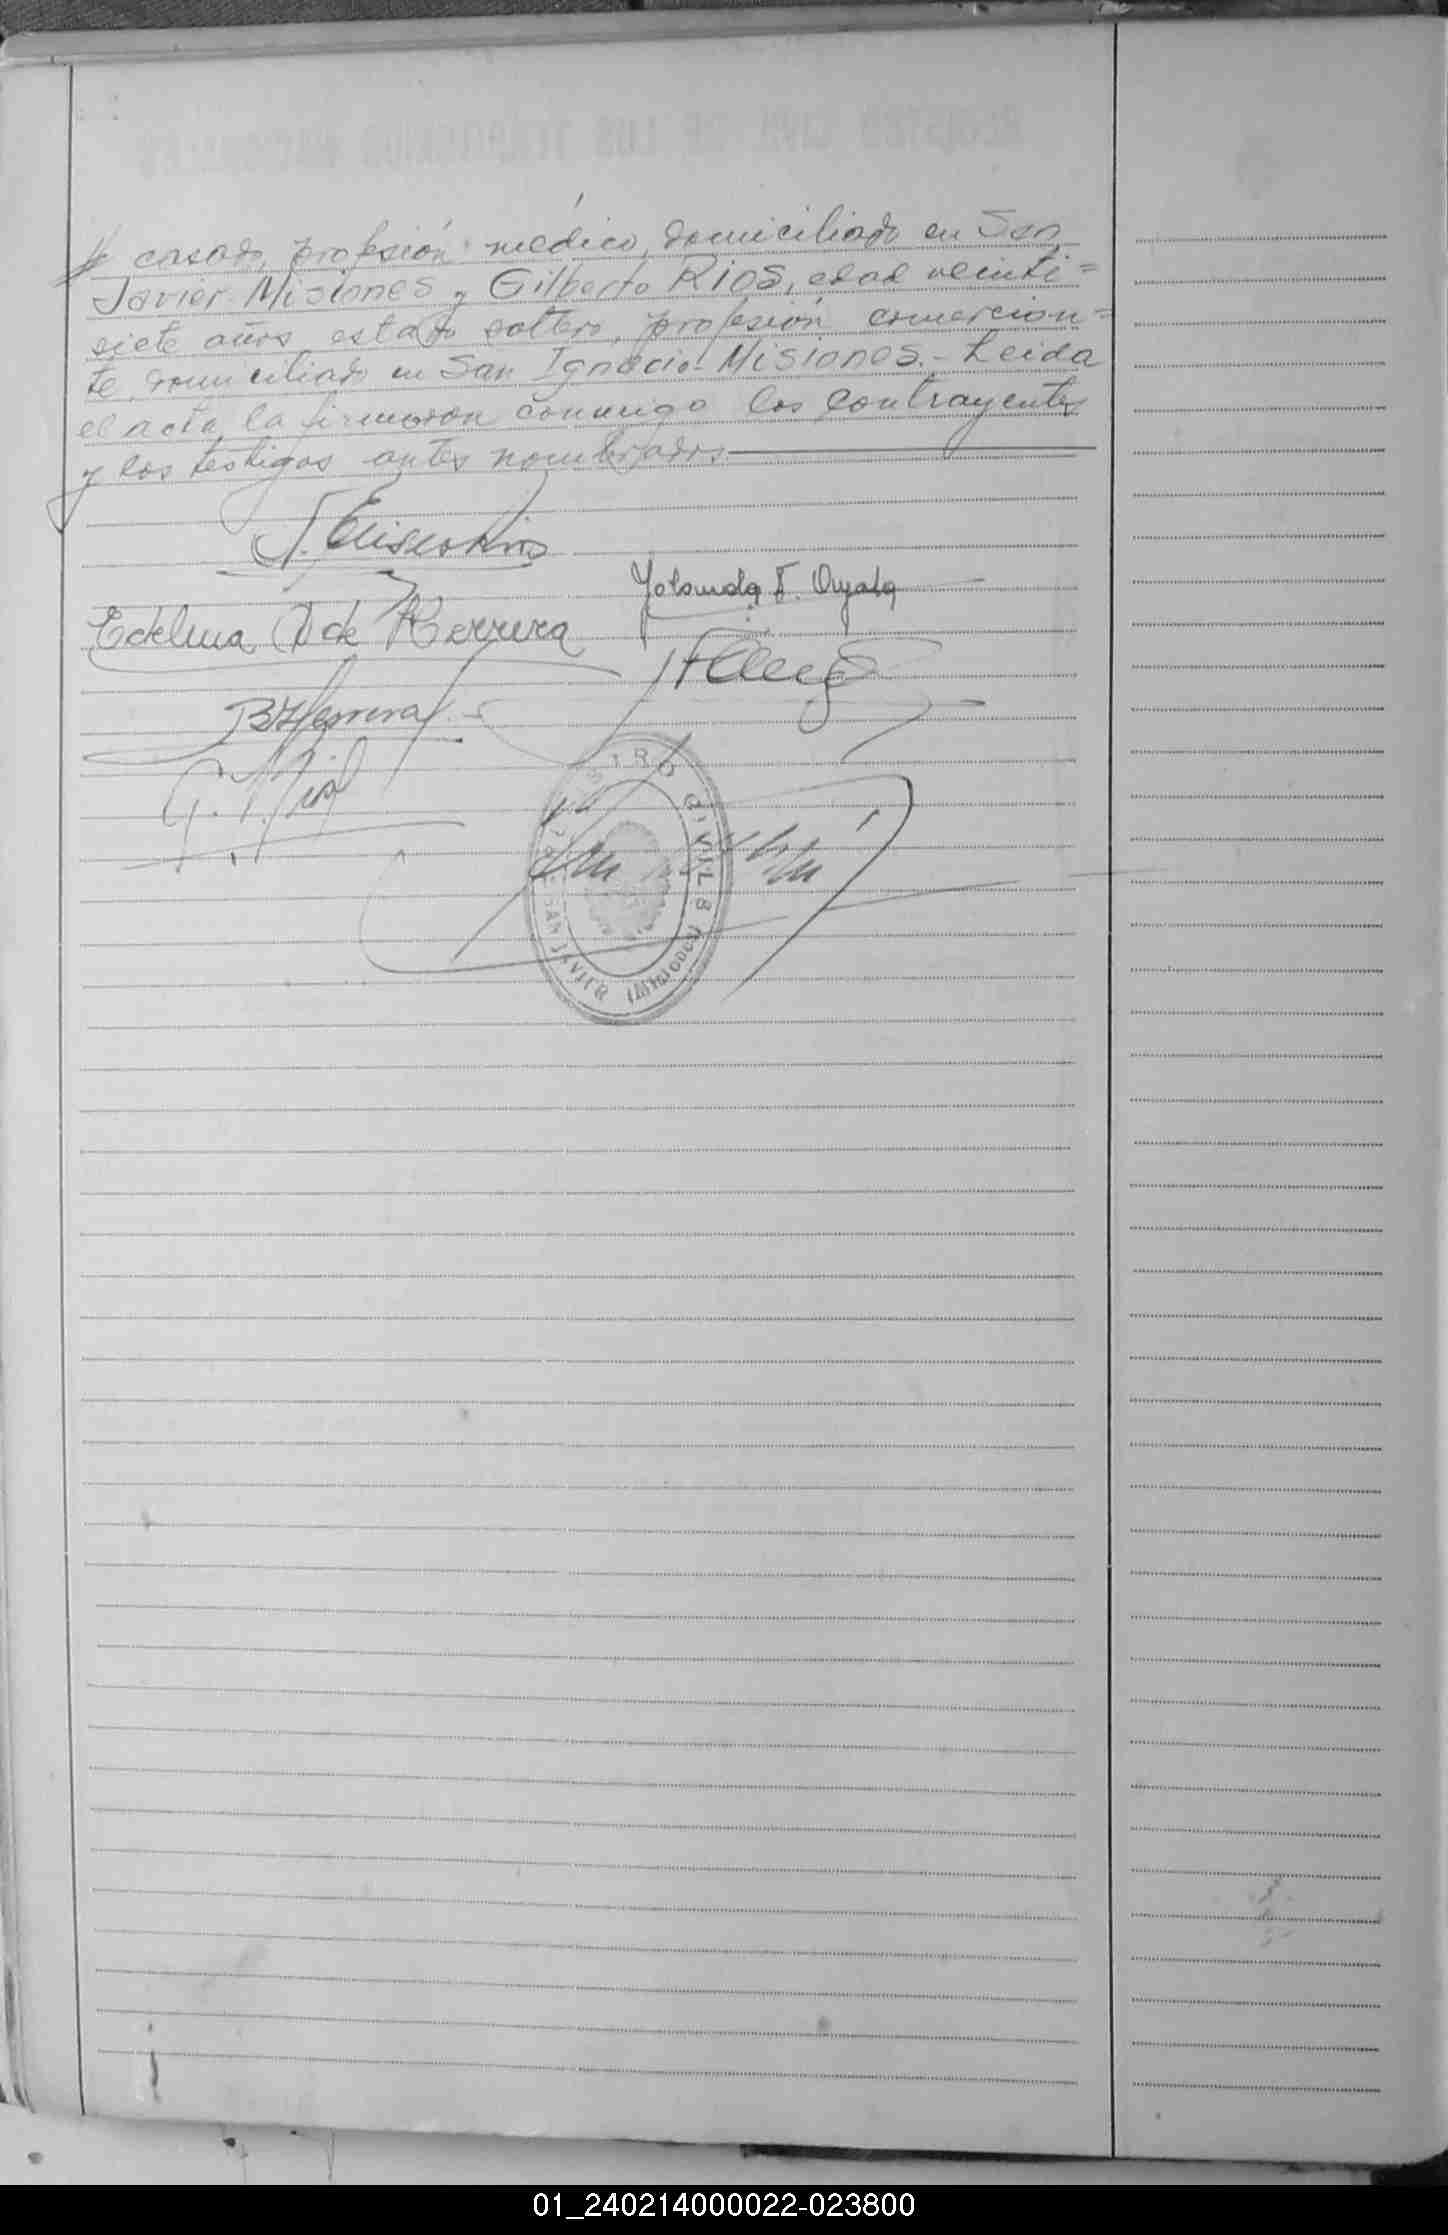 casado, profesión médico, domiciliado en San
Javier-Misiones y Gilberto RIOS, edad veinti=
siete años estado soltero, profesión comercian=
te, domiciliado en San Ignacio-Misiones.- Leida
el acta la firmaron conmigo los contrayentes
y los testigos antes nombrados
Yolanda F. Ayala
Edelma D de Herrera
B Herrera
REGISTRO CIVIL
SAN JAVIER (MISIONES)
01_240214000022-023800